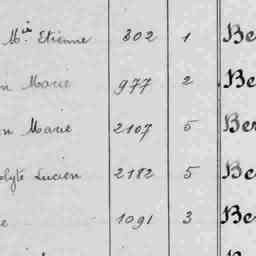 Mie Etienne 302 1 Be
n Marie 977 2 Be
n Marie 2107 5 Ber
olyte Lucien 2182 5 Be
e 1091 3 Be